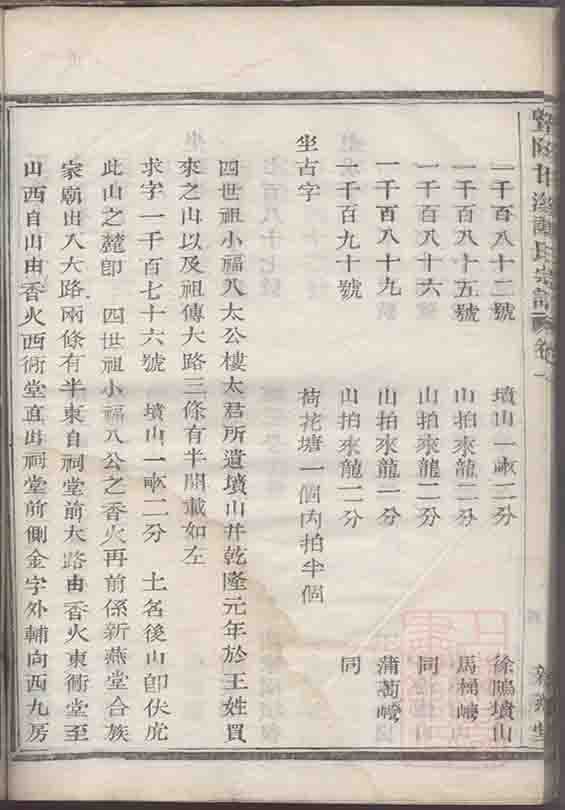 一千百八十二號 墳山一畝二分 徐鴟墳山
一千百八十五號 山拍來龍二分 馬桶嶴山
一千百八十六 山拍來龍二分 同
一千百八十九 山拍來龍一分 蒲萄嶴
一千百九十號 山拍來龍二分 同
坐古字 荷花塘一個內拍半個
四世祖小福八太公樓太君所遺墳山并乾隆元年於王姓買
來之山以及祖傳大路三條有半開載如左
求字一千百七十六號 墳山一畝二分 土名後山卽伏虎
此山之麓卽 四世祖小福八公之香火再前係新燕堂合族
家廟出入大路兩條有半東自祠堂前大路由香火東衖堂至
山西自山由香火西衖堂直出祠堂前側金字外輔向西九房